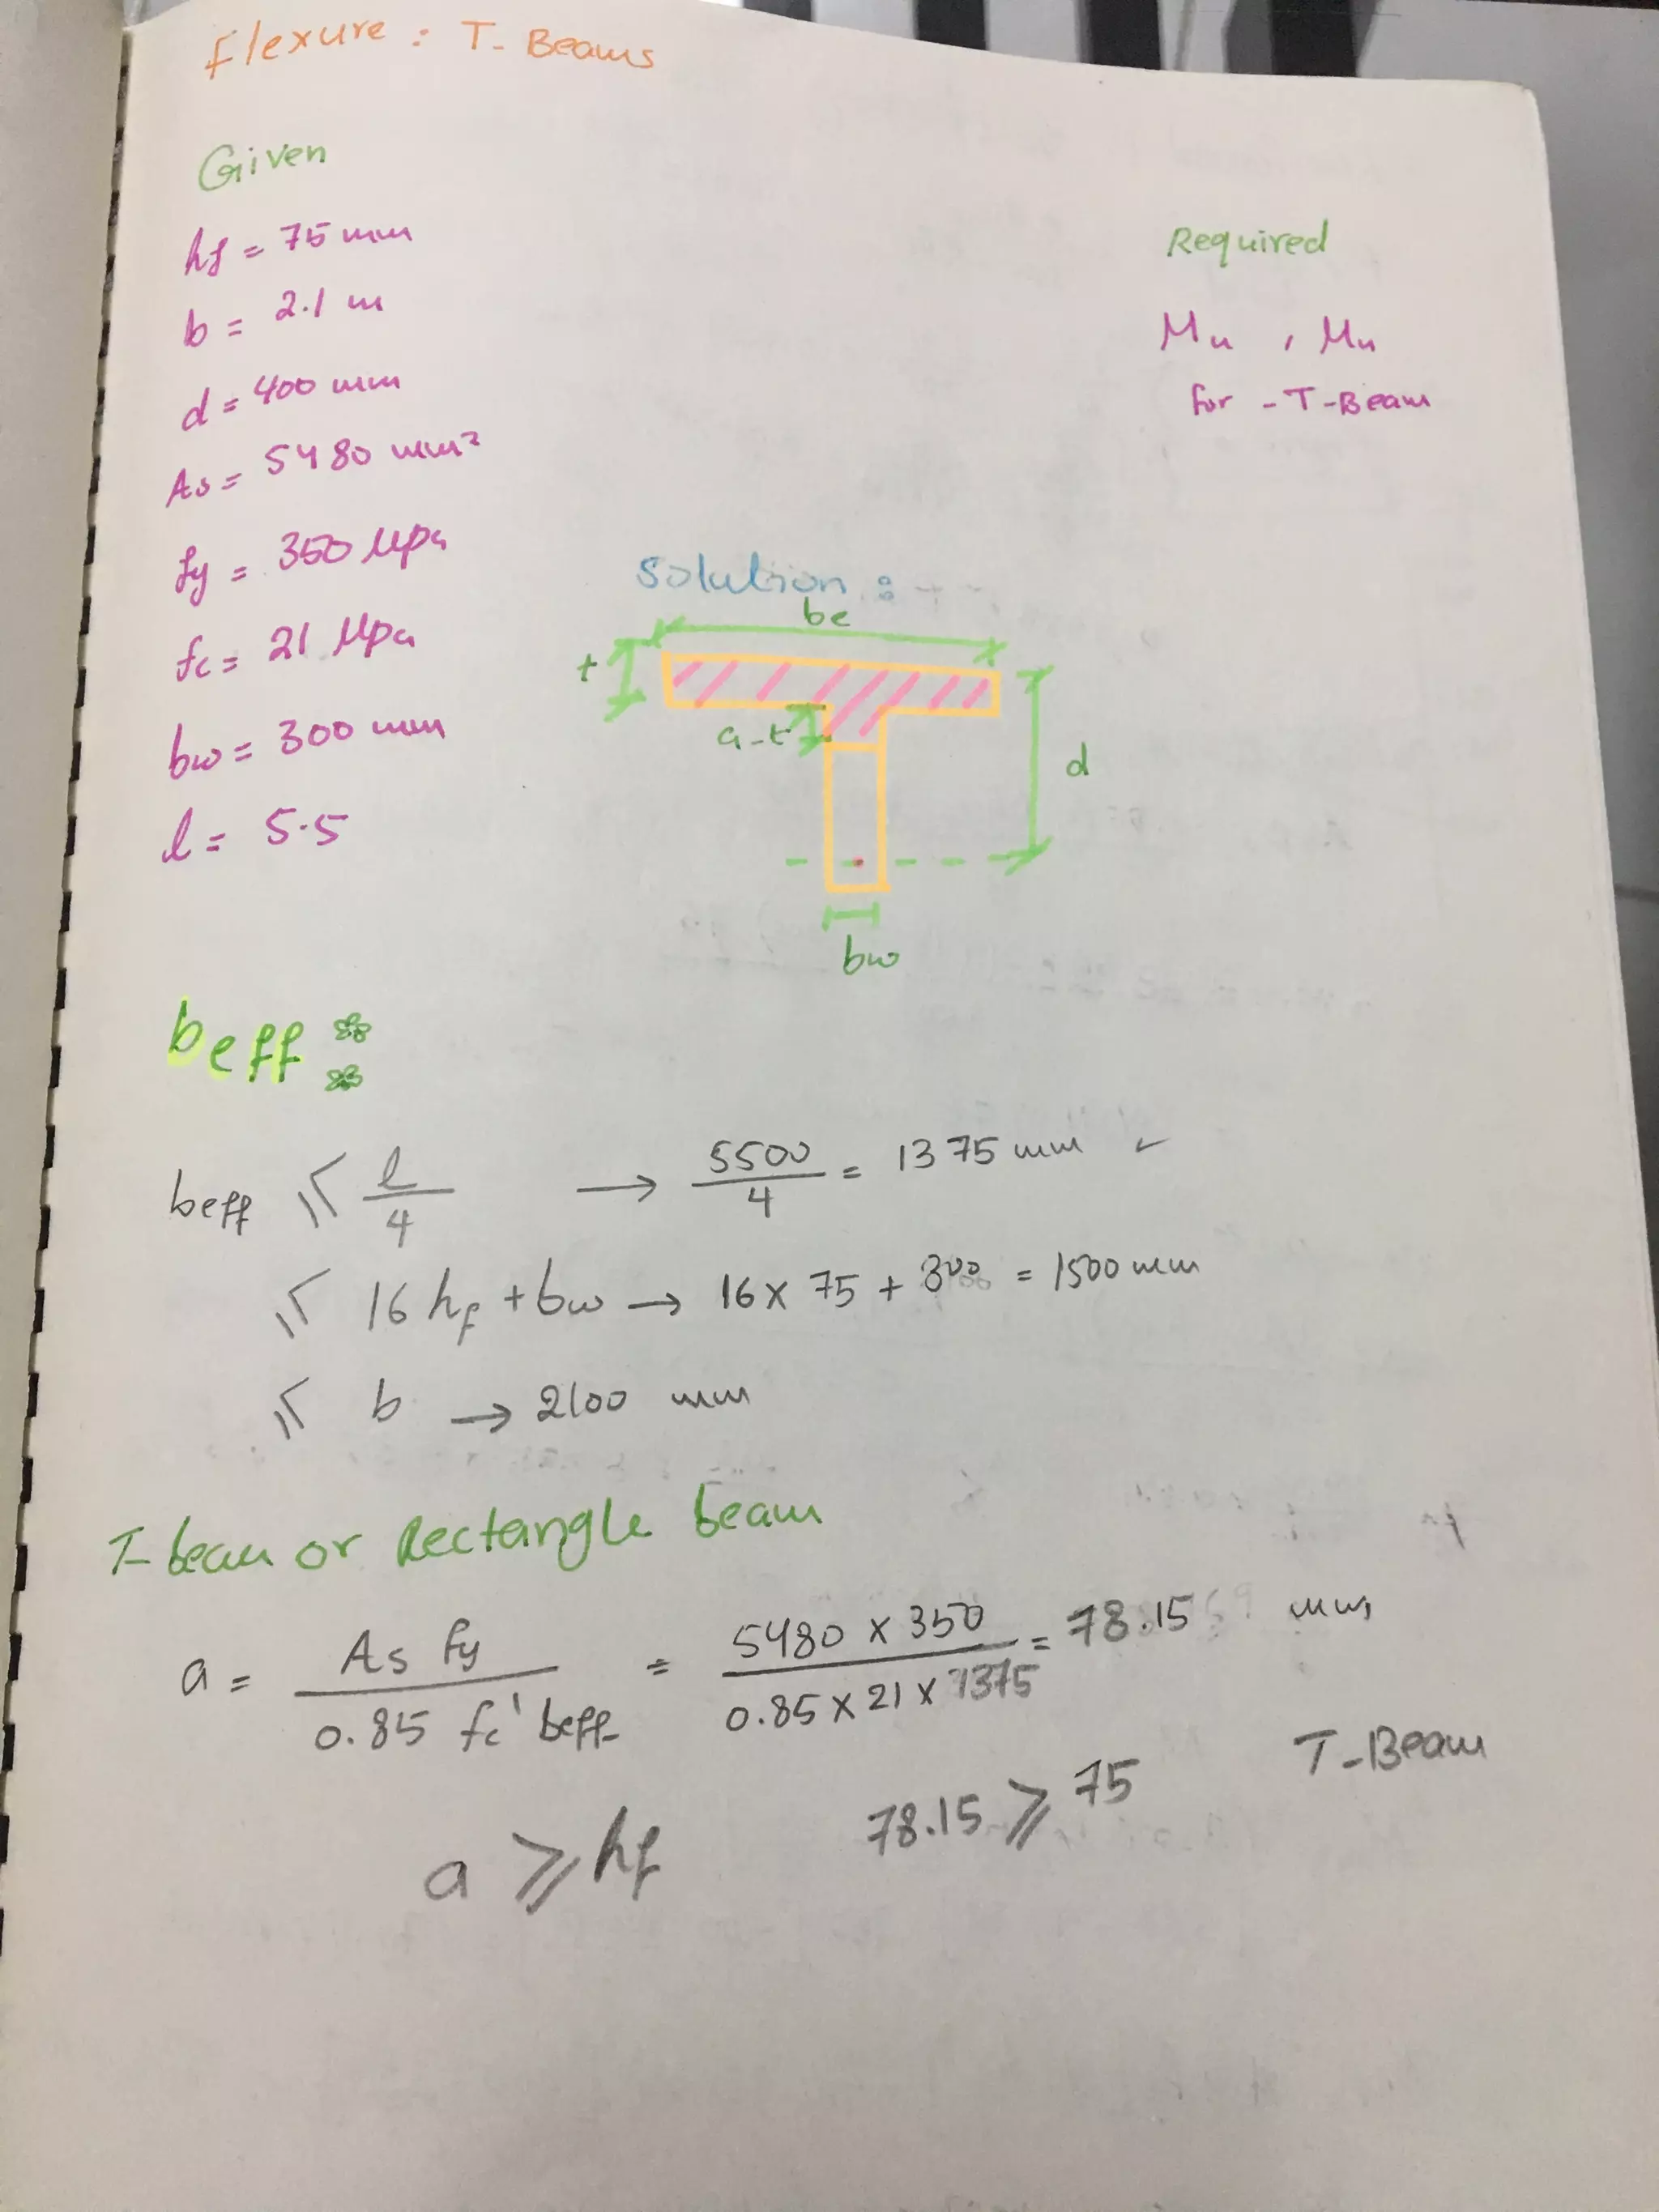 Flexure : T-Beams
Given
hf = 75 mm
b = 2.1 m
d = 400 mm
As = 5480 mm²
fy = 350 Mpa
fc = 21 Mpa
bw = 300 mm
l = 5.5
Required
Mu , Mn
for - T-Beam
Solution :
be
t
a-t
d
bw
beff :
beff ≤ l/4 → 5500/4 = 1375 mm ✓
≤ 16 hf + bw → 16 x 75 + 300 = 1500 mm
≤ b → 2100 mm
T-beam or Rectangle beam
a = As fy / 0.85 fc' beff = 5480 x 350 / 0.85 x 21 x 1375 = 78.15 mm
a ≥ hf 78.15 ≥ 75 T-Beam